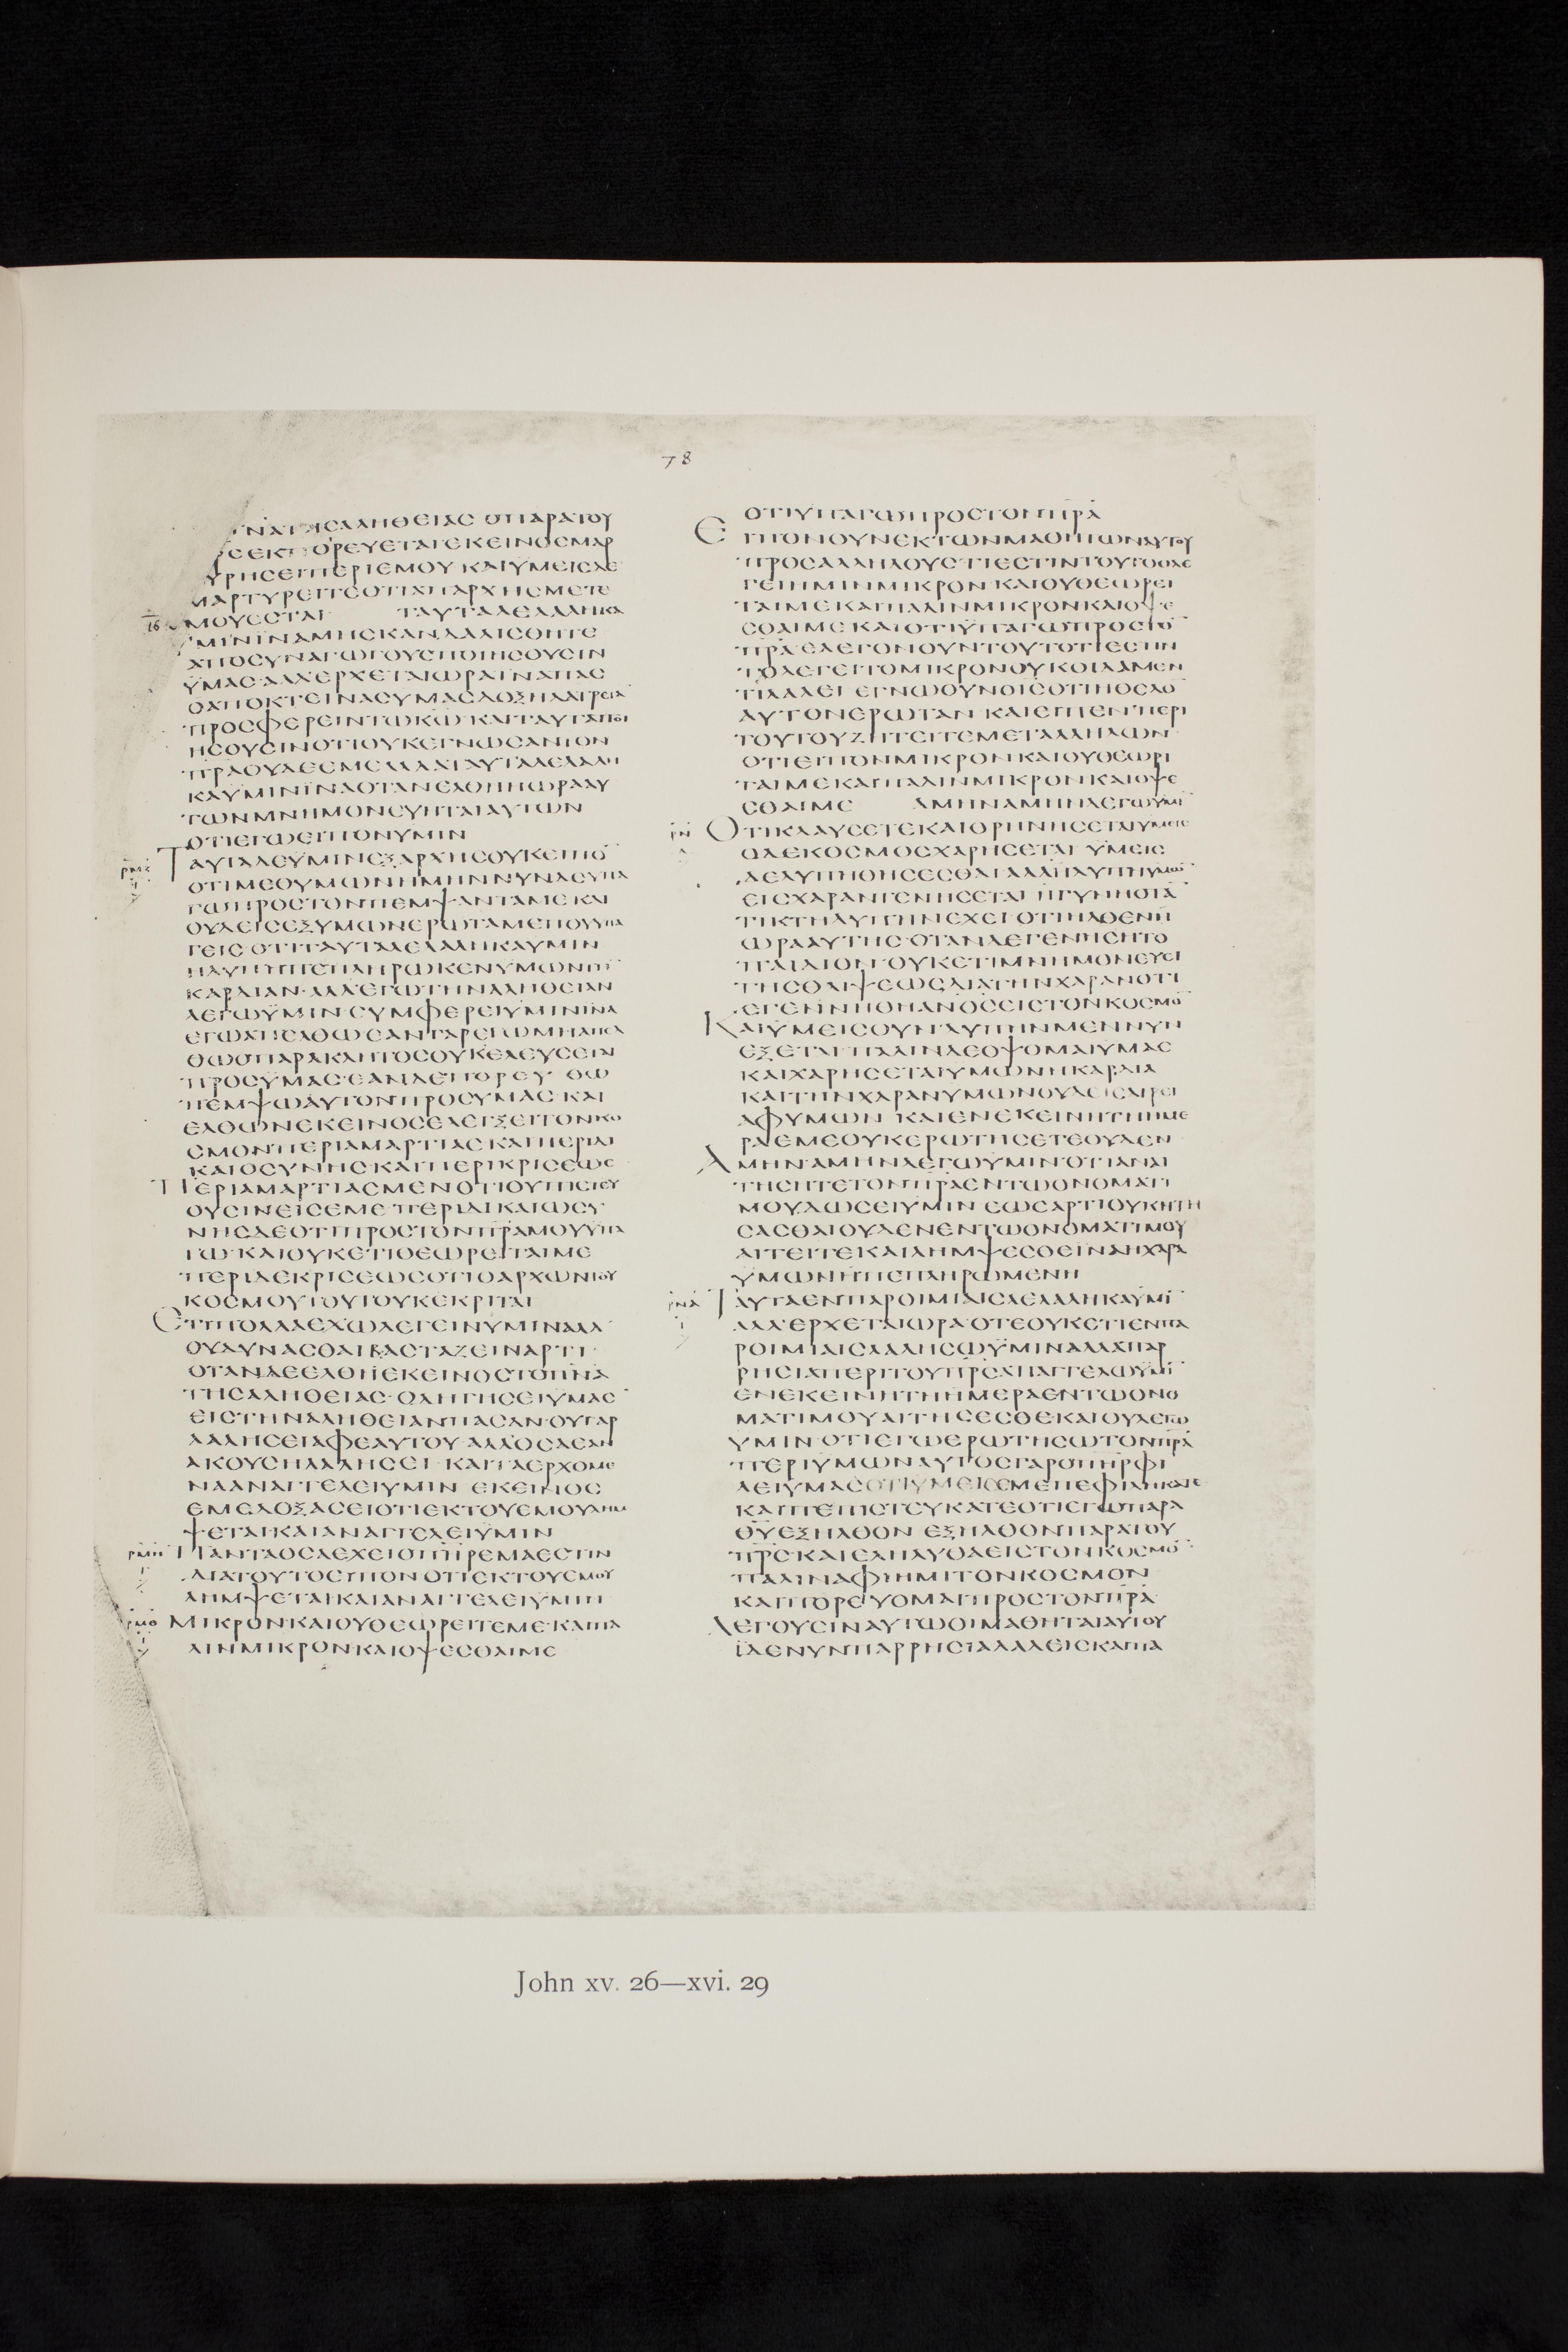 78
ΝΑΤΗϹΑΛΗΘΕΙΑϹ ΟΠΑΡΑΤΟΥ
ϹΕΚΠΟΡΕΥΕΤΑΙΕΚΕΙΝΟϹΜΑΡ
ΥΡΗϹΕΙΠΕΡΙΕΜΟΥ ΚΑΙΥΜΕΙϹΔΕ
ΜΑΡΤΥΡΕΙΤΕΟΤΙΑΠΑΡΧΗϹΜΕΤΕ
16 ΜΟΥΕϹΤΑΙ ΤΑΥΤΑΛΕΛΑΛΗΚΑ
ΥΜΙΝΙΝΑΜΗϹΚΑΝΔΑΛΙϹΘΗΤΕ
ΑΠΟϹΥΝΑΓΩΓΟΥϹΠΟΙΗϹΟΥϹΙΝ
ΫΜΑϹ ΑΛΛΕΡΧΕΤΑΙΩΡΑΪΝΑΠΑϹ
ΟΑΠΟΚΤΕΙΝΑϹΥΜΑϹΔΟΞΗΛΑΤΡΕΙΑ̅
ΠΡΟϹΦΕΡΕΙΝΤΩΘΩ ΚΑΙΤΑΥΤΑΠΟΙ
ΗϹΟΥϹΙΝΟΤΙΟΥΚΕΓΝΩϹΑΝΤΟΝ
Π̅Ρ̅Α̅ΟΥΔΕΕΜΕ ΑΛΛΑΤΑΥΤΑΛΕΛΑΛΗ
ΚΑΥΜΙΝΪΝΑΟΤΑΝΕΛΘΗΗΩΡΑΑΥ
ΤΩΝΜΝΗΜΟΝΕΥΗΤΑΙΑΥΤΩΝ
ΟΤΙΕΓΩΕΙΠΟΝΥΜΙΝ
ΤΑΥΤΑΔΕΫΜΙΝΕΞΑΡΧΗϹΟΥΚΕΙΠΟ̅
ΟΤΙΜΕΘΥΜΩΝΗΜΗΝΝΥΝΔΕΥΠΑ
ΓΩΠΡΟϹΤΟΝΠΕΜΨΑΝΤΑΜΕ ΚΑΙ
ΟΥΔΕΙϹΕΞΥΜΩΝΕΡΩΤΑΜΕΠΟΥΥΠΑ
ΓΕΙϹ ΟΤΙΤΑΥΤΑΛΕΛΑΛΗΚΑΥΜΙΝ
ΗΛΥΠΗΠΕΠΛΗΡΩΚΕΝΥΜΩΝΤΗ̅
ΚΑΡΔΙΑΝ ΑΛΛΕΓΩΤΗΝΑΛΗΘΕΙΑΝ
ΛΕΓΩΫΜΙΝ ϹΥΜΦΕΡΕΙΫΜΙΝΙΝΑ
ΕΓΩΑΠΕΛΘΩ ΕΑΝΓΑΡΕΓΩΜΗΑΠΕΛ
ΘΩΟΠΑΡΑΚΛΗΤΟϹΟΥΚΕΛΕΥϹΕΤΑΙ
ΠΡΟϹΥΜΑϹ ΕΑΝΔΕΠΟΡΕΥ ΘΩ
ΠΕΜΨΩΑΥΤΟΝΠΡΟϹΥΜΑϹ ΚΑΙ
ΕΛΘΩΝΕΚΕΙΝΟϹΕΛΕΓΞΕΙΤΟΝΚΟ
ϹΜΟΝΠΕΡΙΑΜΑΡΤΙΑϹ ΚΑΙΠΕΡΙΔΙ
ΚΑΙΟϹΥΝΗϹ ΚΑΙΠΕΡΙΚΡΙϹΕΩϹ
ΠΕΡΙΑΜΑΡΤΙΑϹΜΕΝΟΤΙΟΥΠΙϹΤΕΥ
ΟΥϹΙΝΕΙϹΕΜΕ ΠΕΡΙΔΙΚΑΙΩϹΥ
ΝΗϹΔΕΟΤΙΠΡΟϹΤΟΝΠ̅Ρ̅Α̅ΜΟΥΥΠΑ
ΓΩ ΚΑΙΟΥΚΕΤΙΘΕΩΡΕΙΤΑΙΜΕ
ΠΕΡΙΔΕΚΡΙϹΕΩϹΟΤΙΟΑΡΧΩΝΤΟΥ
ΚΟϹΜΟΥΤΟΥΤΟΥΚΕΚΡΙΤΑΙ
ΕΤΙΠΟΛΛΑΕΧΩΛΕΓΕΙΝΥΜΙΝΑΛΛ
ΟΥΔΥΝΑϹΘΑΙΒΑϹΤΑΖΕΙΝΑΡΤΙ
ΟΤΑΝΔΕΕΛΘΗΕΚΕΙΝΟϹΤΟΠ̅Ν̅Α̅
ΤΗϹΑΛΗΘΕΙΑϹ ΟΔΗΓΗϹΕΙΫΜΑϹ
ΕΙϹΤΗΝΑΛΗΘΕΙΑΝΠΑϹΑΝ ΟΥΓΑΡ
ΛΑΛΗϹΕΙΑΦΕΑΥΤΟΥ ΑΛΛΟϹΑΕΑΝ
ΑΚΟΥϹΗΛΑΛΗϹΕΙ ΚΑΙΤΑΕΡΧΟΜΕ
ΝΑΑΝΑΓΓΕΛΕΙΥΜΙΝ ΕΚΕΙΝΟϹ
ΕΜΕΔΟΞΑϹΕΙΟΤΙΕΚΤΟΥΕΜΟΥΛΗΜ
ΨΕΤΑΙ ΚΑΙΑΝΑΓΓΕΛΕΙΫΜΙΝ
ΡΜΗ ΠΑΝΤΑΟϹΑΕΧΕΙΟΠ̅Η̅Ρ̅ΕΜΑΕϹΤΙΝ
ΔΙΑΤΟΥΤΟΕΙΠΟΝΟΤΙΕΚΤΟΥΕΜΟΥ
ΛΗΜΨΕΤΑΙΚΑΙΑΝΑΓΓΕΛΕΙΫΜΙΝ
ΡΜΘ ΜΙΚΡΟΝΚΑΙΟΥΘΕΩΡΕΙΤΕΜΕ ΚΑΙΠΑ
ΛΙΝΜΙΚΡΟΝΚΑΙΟΨΕϹΘΑΙΜΕ
ΟΤΙΥΠΑΓΩΠΡΟϹΤΟΝΠ̅Ρ̅Α̅
ΕΙΠΟΝΟΥΝΕΚΤΩΝΜΑΘΗΤΩΝΑΥΤΟΥ
ΠΡΟϹΑΛΛΗΛΟΥϹΤΙΕϹΤΙΝΤΟΥΤΟΟΛΕ
ΓΕΙΗΜΙΝΜΙΚΡΟΝ ΚΑΙΟΥΘΕΩΡΕΙ
ΤΑΙΜΕ ΚΑΙΠΑΛΙΝΜΙΚΡΟΝΚΑΙΟΨΕ
ϹΘΑΙΜΕ ΚΑΙΟΤΙΫΠΑΓΩΠΡΟϹΤΟ̅
Π̅Ρ̅Α̅ ΕΛΕΓΟΝΟΥΝΤΟΥΤΟΤΙΕϹΤΙΝ
ΤΟΛΕΓΕΙΤΟΜΙΚΡΟΝΟΥΚΟΙΔΑΜΕΝ
ΤΙΛΑΛΕΙ ΕΓΝΩΟΥΝΟΙϹΟΤΙΗΘΕΛΟ̅
ΑΥΤΟΝΕΡΩΤΑΝ ΚΑΙΕΙΠΕΝΠΕΡΙ
ΤΟΥΤΟΥΖΗΤΕΙΤΕΜΕΤΑΛΛΗΛΩΝ
ΟΤΙΕΙΠΟΝΜΙΚΡΟΝΚΑΙΟΥΘΕΩΡΙ
ΤΑΙΜΕ ΚΑΙΠΑΛΙΝΜΙΚΡΟΝΚΑΙΟΨΕ
ϹΘΑΙΜΕ ΑΜΗΝΑΜΗΝΛΕΓΩΥΜΙ̅
ΡΝ ΟΤΙΚΛΑΥϹΕΤΕΚΑΙΘΡΗΝΗϹΕΤΑΙΥΜΕΙϹ
ΟΔΕΚΟϹΜΟϹΧΑΡΗϹΕΤΑΙ ΥΜΕΙϹ
ΔΕΛΥΠΗΘΗϹΕϹΘΑΙ ΑΛΛΗΛΥΠΗΥΜΩ̅
ΕΙϹΧΑΡΑΝΓΕΝΗϹΕΤΑΙ ΗΓΥΝΗΟΤΑ̅
ΤΙΚΤΗΛΥΠΗΝΕΧΕΙ ΟΤΙΗΛΘΕΝΗ
ΩΡΑΑΥΤΗϹ ΟΤΑΝΔΕΓΕΝΗϹΗΤΟ
ΠΑΙΔΙΟΝ ΟΥΚΕΤΙΜΝΗΜΟΝΕΥΕΙ
ΤΗϹΘΛΙΨΕΩϹΔΙΑΤΗΝΧΑΡΑΝΟΤΙ
ΕΓΕΝΝΗΘΗΑΝΟϹΕΙϹΤΟΝΚΟϹΜΟ̅
ΚΑΙΫΜΕΙϹΟΥΝ ΛΥΠΗΝΜΕΝΝΥΝ
ΕΞΕΤΑΙ ΠΑΛΙΝΔΕΟΨΟΜΑΙΥΜΑϹ
ΚΑΙΧΑΡΗϹΕΤΑΙΥΜΩΝΗΚΑΡΔΙΑ
ΚΑΙΤΗΝΧΑΡΑΝΥΜΩΝΟΥΔΕΙϹΑΙΡΕΙ
ΑΦΥΜΩΝ ΚΑΙΕΝΕΚΕΙΝΗΤΗΗΜΕ
ΡΑΕΜΕΟΥΚΕΡΩΤΗϹΕΤΕΟΥΔΕΝ
ΑΜΗΝΑΜΗΝΛΕΓΩΥΜΙΝΟΤΙΑΝΑΙ
ΤΗϹΗΤΕΤΟΝΠ̅Ρ̅Α̅ΕΝΤΩΟΝΟΜΑΤΙ
ΜΟΥΔΩϹΕΙΥΜΙΝ ΕΩϹΑΡΤΙΟΥΚΗΤΗ
ϹΑϹΘΑΙΟΥΔΕΝΕΝΤΩΟΝΟΜΑΤΙΜΟΥ
ΑΙΤΕΙΤΕΚΑΙΛΗΜΨΕϹΘΕΙΝΑΗΧΑΡΑ
ΥΜΩΝΗΠΕΠΛΗΡΩΜΕΝΗ
ΡΝΑ ΤΑΥΤΑΕΝΠΑΡΟΙΜΙΑΙϹΛΕΛΑΛΗΚΑΫΜΙ̅
ΑΛΛΕΡΧΕΤΑΙΩΡΑΟΤΕΟΥΚΕΤΙΕΝΠΑ
ΡΟΙΜΙΑΙϹΛΑΛΗϹΩΫΜΙΝΑΛΛΑΠΑΡ
ΡΗϹΙΑΠΕΡΙΤΟΥΠ̅Ρ̅Ϲ̅ΑΠΑΓΓΕΛΩΫΜΙ̅
ΕΝΕΚΕΙΝΗΤΗΗΜΕΡΑΕΝΤΩΟΝΟ
ΜΑΤΙΜΟΥΑΙΤΗϹΕϹΘΕΚΑΙΟΥΛΕΓΩ
ΥΜΙΝ ΟΤΙΕΓΩΕΡΩΤΗϹΩΤΟΝΠ̅Ρ̅Α̅
ΠΕΡΙΥΜΩΝΑΥΤΟϹΓΑΡΟΠ̅Η̅Ρ̅ΦΙ
ΛΕΙΥΜΑϹΟΤΙΥΜΕΙϹΕΜΕΠΕΦΙΛΗΚΑΤΕ
ΚΑΙΠΕΠΙϹΤΕΥΚΑΤΕΟΤΙΕΓΩΠΑΡΑ
Θ̅Υ̅ΕΞΗΛΘΟΝ ΕΞΗΛΘΟΝΠΑΡΑΤΟΥ
Π̅Ρ̅Ϲ̅ΚΑΙΕΛΗΛΥΘΑΕΙϹΤΟΝΚΟϹΜΟ̅
ΠΑΛΙΝΑΦΙΗΜΙΤΟΝΚΟϹΜΟΝ
ΚΑΙΠΟΡΕΥΟΜΑΙΠΡΟϹΤΟΝΠ̅Ρ̅Α̅
ΛΕΓΟΥϹΙΝΑΥΤΩΟΙΜΑΘΗΤΑΙΑΥΤΟΥ
ΪΔΕΝΥΝΠΑΡΡΗϹΙΑΛΑΛΕΙϹΚΑΙΠΑ
John xv. 26—xvi. 29